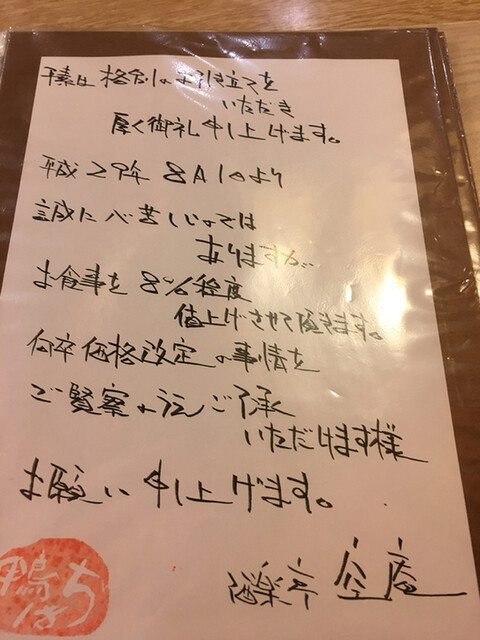 平素は格別のお引き立てを
いただき
厚く御礼申し上げます。
平成29年8月1日より
誠に心苦しいのでは
ありますが
お食事を8%程度
値上げさせて頂きます。
何卒価格改定の事情を
ご賢察の上ご了承
いただけます様
お願い申し上げます。
酒楽亭 空庵
鴨
はち